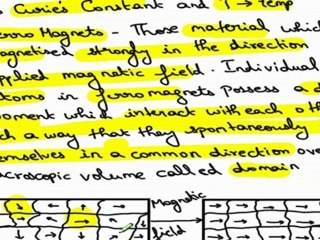 s Curie's Constant and T → temp
erro Magnets - Those material which
agnetised strongly in the direction
applied magnetic field. Individual
toms in ferromagnets possess a d
oment which interact with each oth
ch a way that they spontaneously
emselves in a common direction ove
acroscopic volume called domain
Magnetic
field